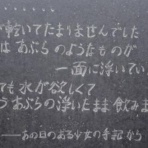 ．．．．．．
が乾いてたまりませんでした
はあぶらのようなものが
一面に浮いてい
ても水が欲しくて
うあぶらの浮いたまま飲みま
――あの日のある少女の手記から